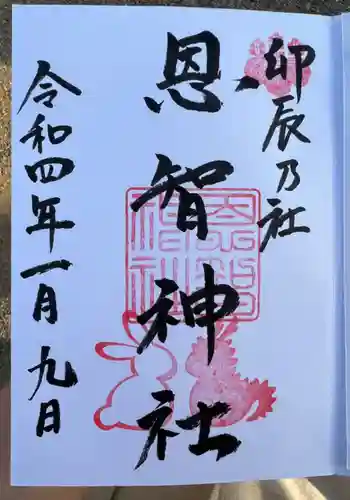 卯辰乃社
恩智神社
令和四年一月九日
恩智神社